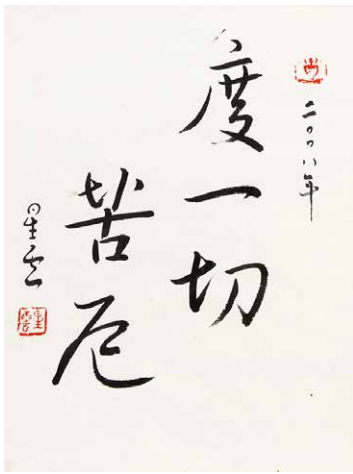 二〇〇八年
度一切
苦厄
星雲